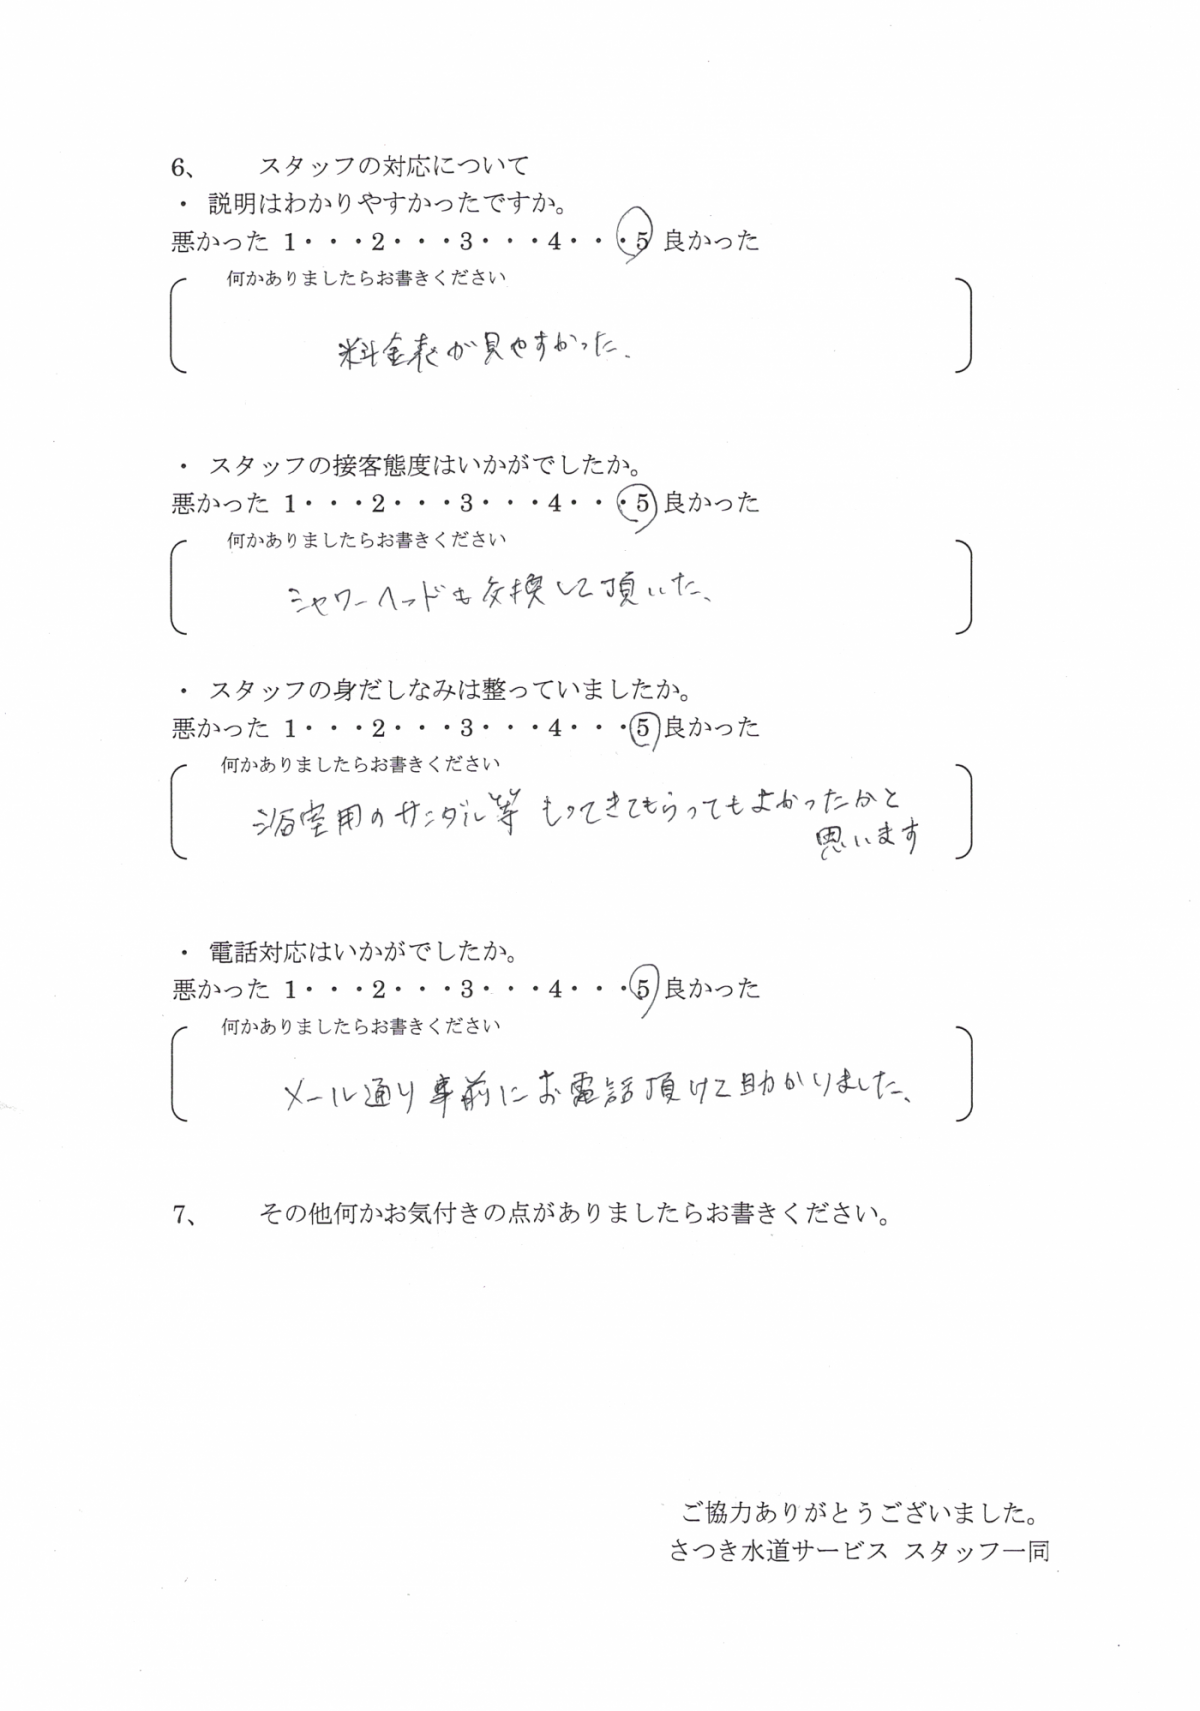 6、　スタッフの対応について
・ 説明はわかりやすかったですか。
悪かった 1・・・2・・・3・・・4・・・5 良かった
何かありましたらお書きください
料金表が見やすかった、
・ スタッフの接客態度はいかがでしたか。
悪かった 1・・・2・・・3・・・4・・・5 良かった
何かありましたらお書きください
シャワーヘッドも交換して頂いた、
・ スタッフの身だしなみは整っていましたか。
悪かった 1・・・2・・・3・・・4・・・5 良かった
何かありましたらお書きください
浴室用のサンダル等 もってきてもらってもよかったかと
思います
・ 電話対応はいかがでしたか。
悪かった 1・・・2・・・3・・・4・・・5 良かった
何かありましたらお書きください
メール通り事前にお電話頂けて助かりました、
7、　その他何かお気付きの点がありましたらお書きください。
ご協力ありがとうございました。
さつき水道サービス スタッフ一同